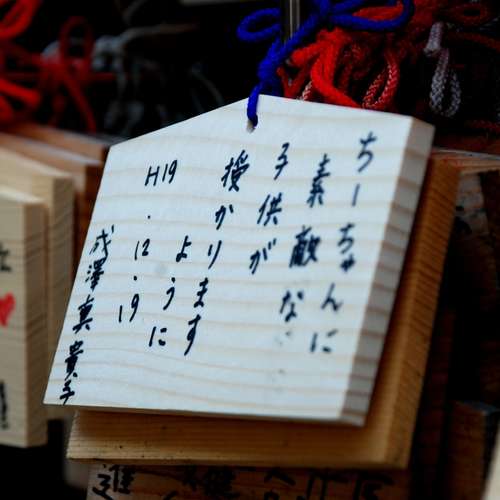 ちーちゃんに
素敵な
子供が
授かります
ように
H19.12.19
成澤真貴子